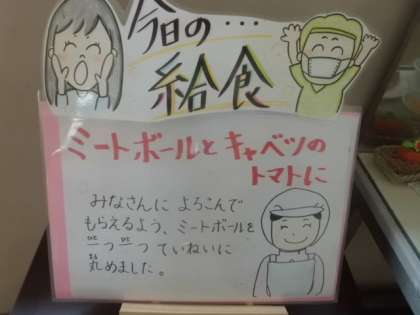 今日の…
給食
ミートボールと キャベツの
トマトに
みなさんに よろこんで
もらえるよう、ミートボールを
一つ一つ ていねいに
丸めました。